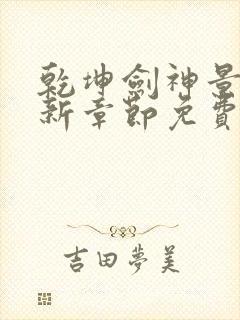 乾坤劍神景
新章節免費
吉田夢美